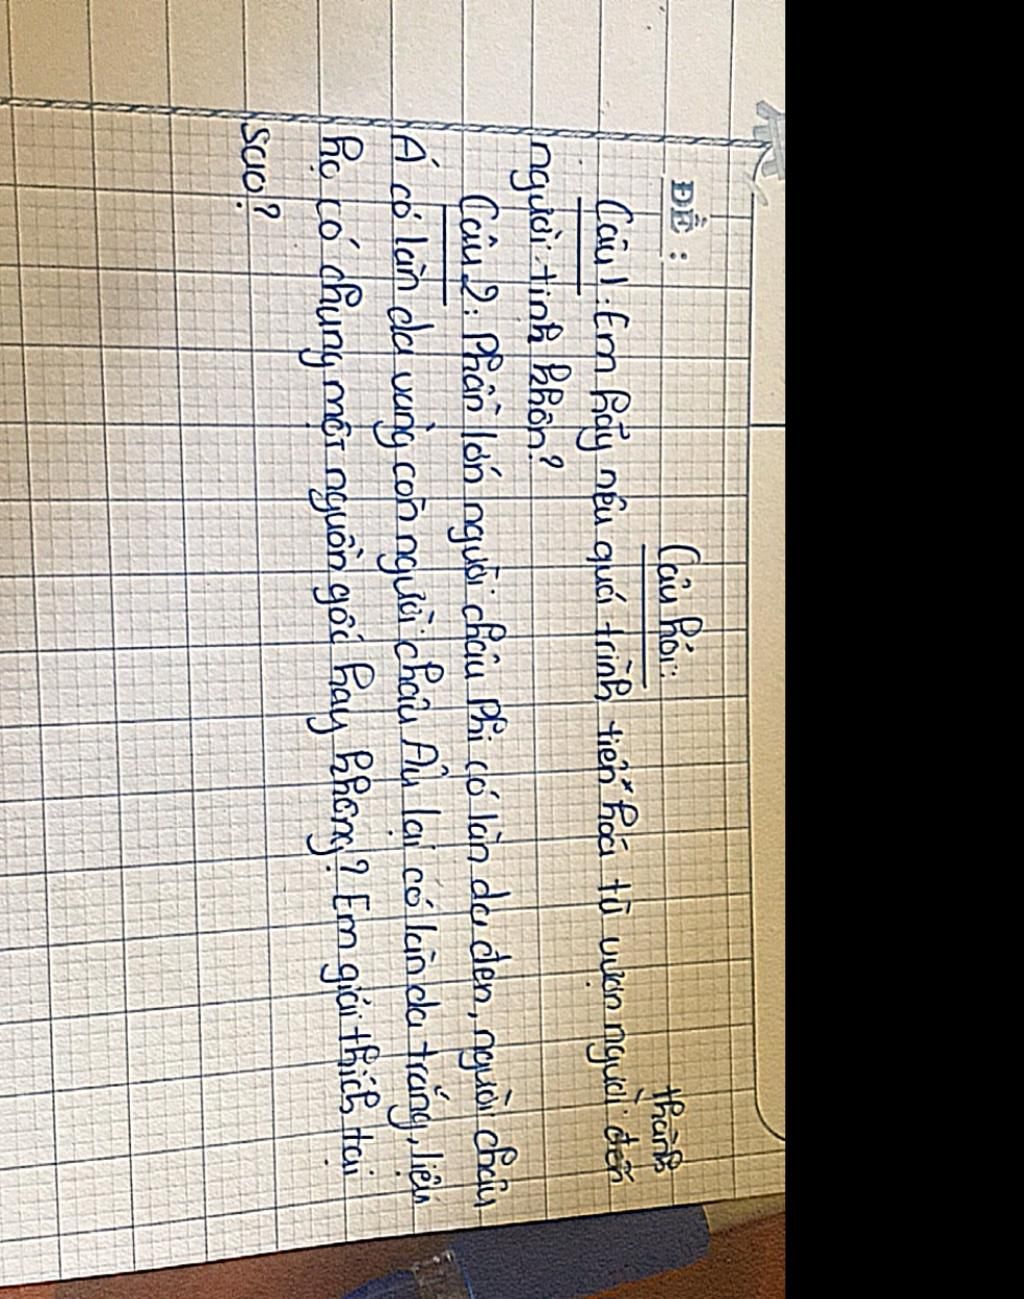 ĐỀ:
Câu hỏi:
Câu 1: Em hãy nêu quá trình tiến hóa từ vượn người đến thành
người tinh khôn?
Câu 2: Phần lớn người châu Phi có làn da đen, người châu
Á có làn da vàng còn người châu Âu lại có làn da trắng, liệu
họ có chung một nguồn gốc hay không? Em giải thích tại
sao?